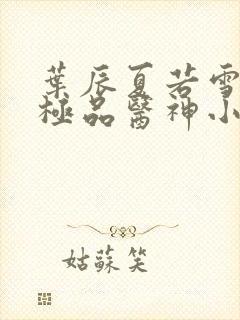 葉辰夏若雪
極品醫神小
姑蘇笑